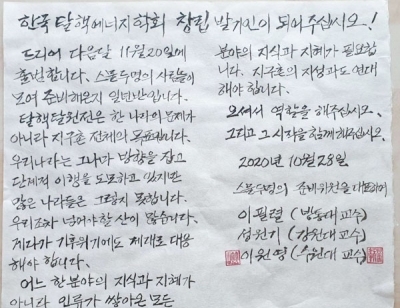 한국 탈핵에너지학회 창립 발기인이 되어주십시오!
드디어 다음달 11월20일에
출범합니다. 스물두명의 사람들이
모여 준비해온지 일년만입니다.
탈핵탈원전은 한 나라의 문제가
아니라 지구촌 전체의 목표입니다.
우리나라는 그나마 방향을 잡고
단계적 이행을 도모하고 있지만
많은 나라들은 그렇지 못합니다.
우리조차 넘어야할 산이 많습니다.
게다가 기후위기에도 제대로 대응
해야 합니다.
어느 한 분야의 지식과 지혜가
아니라 인류가 쌓아온 모든
분야의 지식과 지혜가 필요합
니다. 지구촌의 지성과도 연대
해야 합니다.
오셔서 역할을 해주십시오.
그리고 그 시작을 함께해주십시오.
2020년 10월 28일
스물두명의 준비위원을 대표하여
이필렬 (방통대 교수)
성원기 (강원대 교수)
이원영 (수원대 교수)